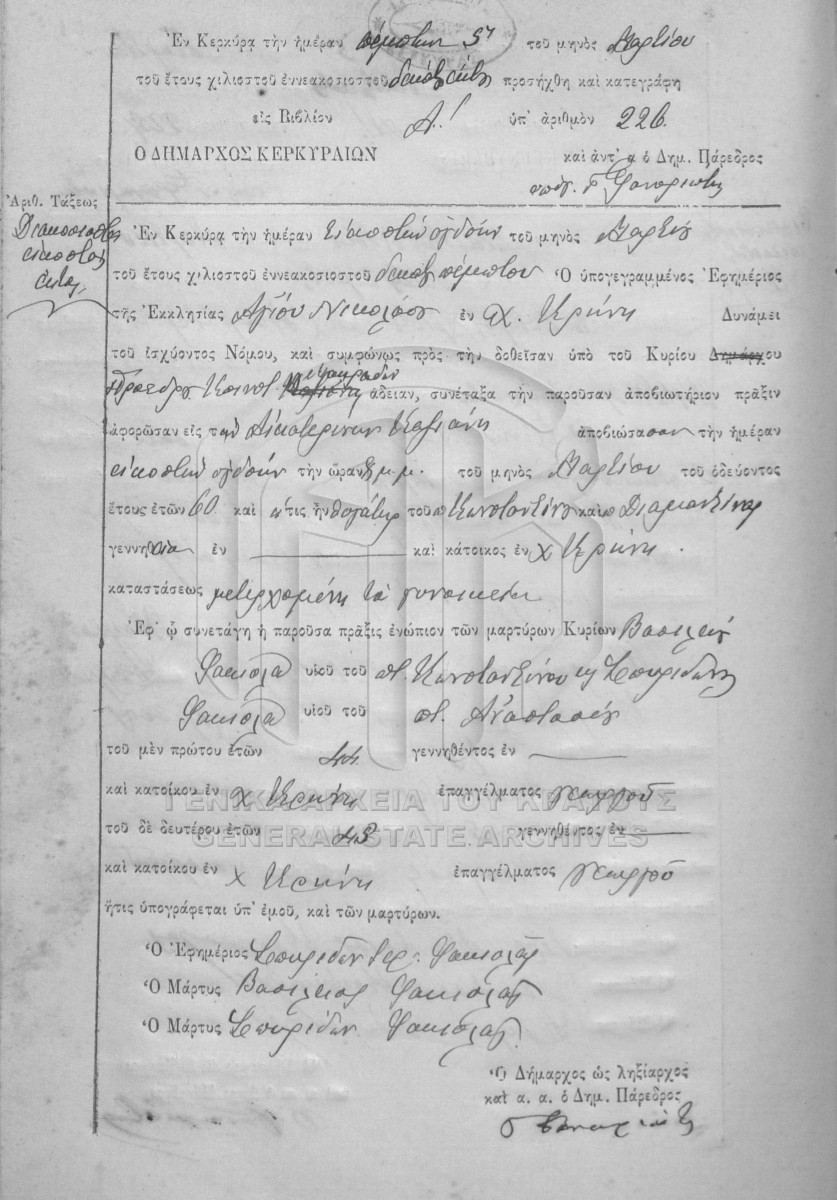 Ἐν Κερκύρᾳ τὴν ἡμέραν πέμπτην 5ην τοῦ μηνὸς Μαρτίου
τοῦ ἔτους χιλιοστοῦ ἐννεακοσιοστοῦ προσήχθη καὶ κατεγράφη
εἰς Βιβλίον Α! ὑπ' ἀριθμὸν 226
Ο ΔΗΜΑΡΧΟΣ ΚΕΡΚΥΡΑΙΩΝ καὶ ἀντ' α ὁ Δημ. Πάρεδρος
Ἀριθ. Τάξεως
Διακοσιοστὸς
εἰκοστὸς
ἕκτος
Ἐν Κερκύρᾳ τὴν ἡμέραν εἰκοστὴν ὀγδόην τοῦ μηνὸς Μαρτίου
τοῦ ἔτους χιλιοστοῦ ἐννεακοσιοστοῦ δεκάτου πέμπτου Ὁ ὑπογεγραμμένος Ἐφημέριος
τῆς Ἐκκλησίας Ἁγίου Νικολάου ἐν χ. Κρήνη Δυνάμει
τοῦ ἰσχύοντος Νόμου, καὶ συμφώνως πρὸς τὴν δοθεῖσαν ὑπὸ τοῦ Κυρίου Δημάρχου
Πρόεδρου Κοινοτ. ἄδειαν, συνέταξα τὴν παροῦσαν ἀποβιωτήριον πρᾶξιν
ἀφορῶσαν εἰς τὴν Αἰκατερίνην ἀποβιώσασαν τὴν ἡμέραν
εἰκοστὴν ὀγδόην τὴν ὥραν μ.μ. τοῦ μηνὸς Μαρτίου τοῦ ὁδεύοντος
ἔτους ἐτῶν 60 καὶ ἥτις ἦν θυγάτηρ τοῦ π Κωνσταντίνου καὶ Διαμαντίνας
γεννηθεῖσα ἐν καὶ κάτοικος ἐν χ Κρήνη.
καταστάσεως μετερχομένη τὰ γυναικεῖα
Ἐφ' ᾧ συνετάγη ἡ παροῦσα πρᾶξις ἐνώπιον τῶν μαρτύρων Κυρίων Βασιλείου
Φακιολᾶ υἱοῦ τοῦ ποτ. Κωνσταντίνου κ Σπυρίδωνος
Φακιολᾶ υἱοῦ τοῦ ποτ. Ἀναστασίου
τοῦ μὲν πρώτου ἐτῶν 44 γεννηθέντος ἐν
καὶ κατοίκου ἐν χ Κρήνη ἐπαγγέλματος γεωργοῦ
τοῦ δὲ δευτέρου ἐτῶν γεννηθέντος ἐν
καὶ κατοίκου ἐν χ Κρήνη ἐπαγγέλματος γεωργοῦ
ἥτις ὑπογράφεται ὑπ' ἐμοῦ, καὶ τῶν μαρτύρων.
Ὁ Ἐφημέριος Σπυρίδων Ἱερ. Φακιολᾶς
Ὁ Μάρτυς Βασίλειος Φακιολᾶς
Ὁ Μάρτυς Σπυρίδων Φακιολᾶς
Ὁ Δήμαρχος ὡς ληξίαρχος
καὶ α. α. ὁ Δημ. Πάρεδρος
ΓΕΝΙΚΑ ΑΡΧΕΙΑ ΤΟΥ ΚΡΑΤΟΥΣ
GENERAL STATE ARCHIVES